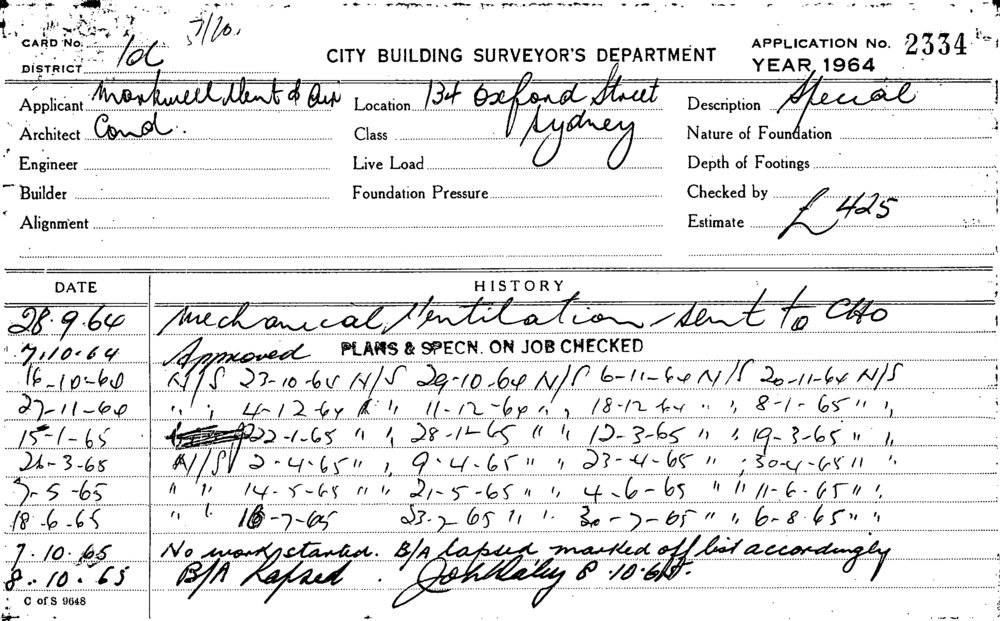 3/20.
CARD No.
DISTRICT 1d
CITY BUILDING SURVEYOR'S DEPARTMENT
APPLICATION No. 2334
YEAR 1964
Applicant Markwell Vent & Air Location 134 Oxford Street Description Special
Architect Cond. Class Sydney Nature of Foundation
Engineer Live Load Depth of Footings
Builder Foundation Pressure Checked by
Alignment Estimate £425
DATE HISTORY
28.9.64 Mechanical Ventilation sent to CHO
7.10.64 Approved PLANS & SPECN. ON JOB CHECKED
16-10-64 N/S 23-10-64 N/S 29-10-64 N/S 6-11-64 N/S 20-11-64 N/S
27-11-64 " " 4-12-64 " 11-12-64 " " 18-12-64 " " 8-1-65 " "
15-1-65 22-1-65 " " 28-1-65 " " 12-3-65 " " 19-3-65 " "
26-3-65 N/S 2-4-65 " " 9-4-65 " " 23-4-65 " " 30-4-65 " "
7-5-65 " " 14-5-65 " " 21-5-65 " " 4-6-65 " " 11-6-65 " "
18-6-65 " " 16-7-65 23-7-65 " " 30-7-65 " " 6-8-65 " "
7.10.65 No work started. B/A lapsed marked off list accordingly
8.10.65 B/A Lapsed. 8.10.65.
C of S 9648